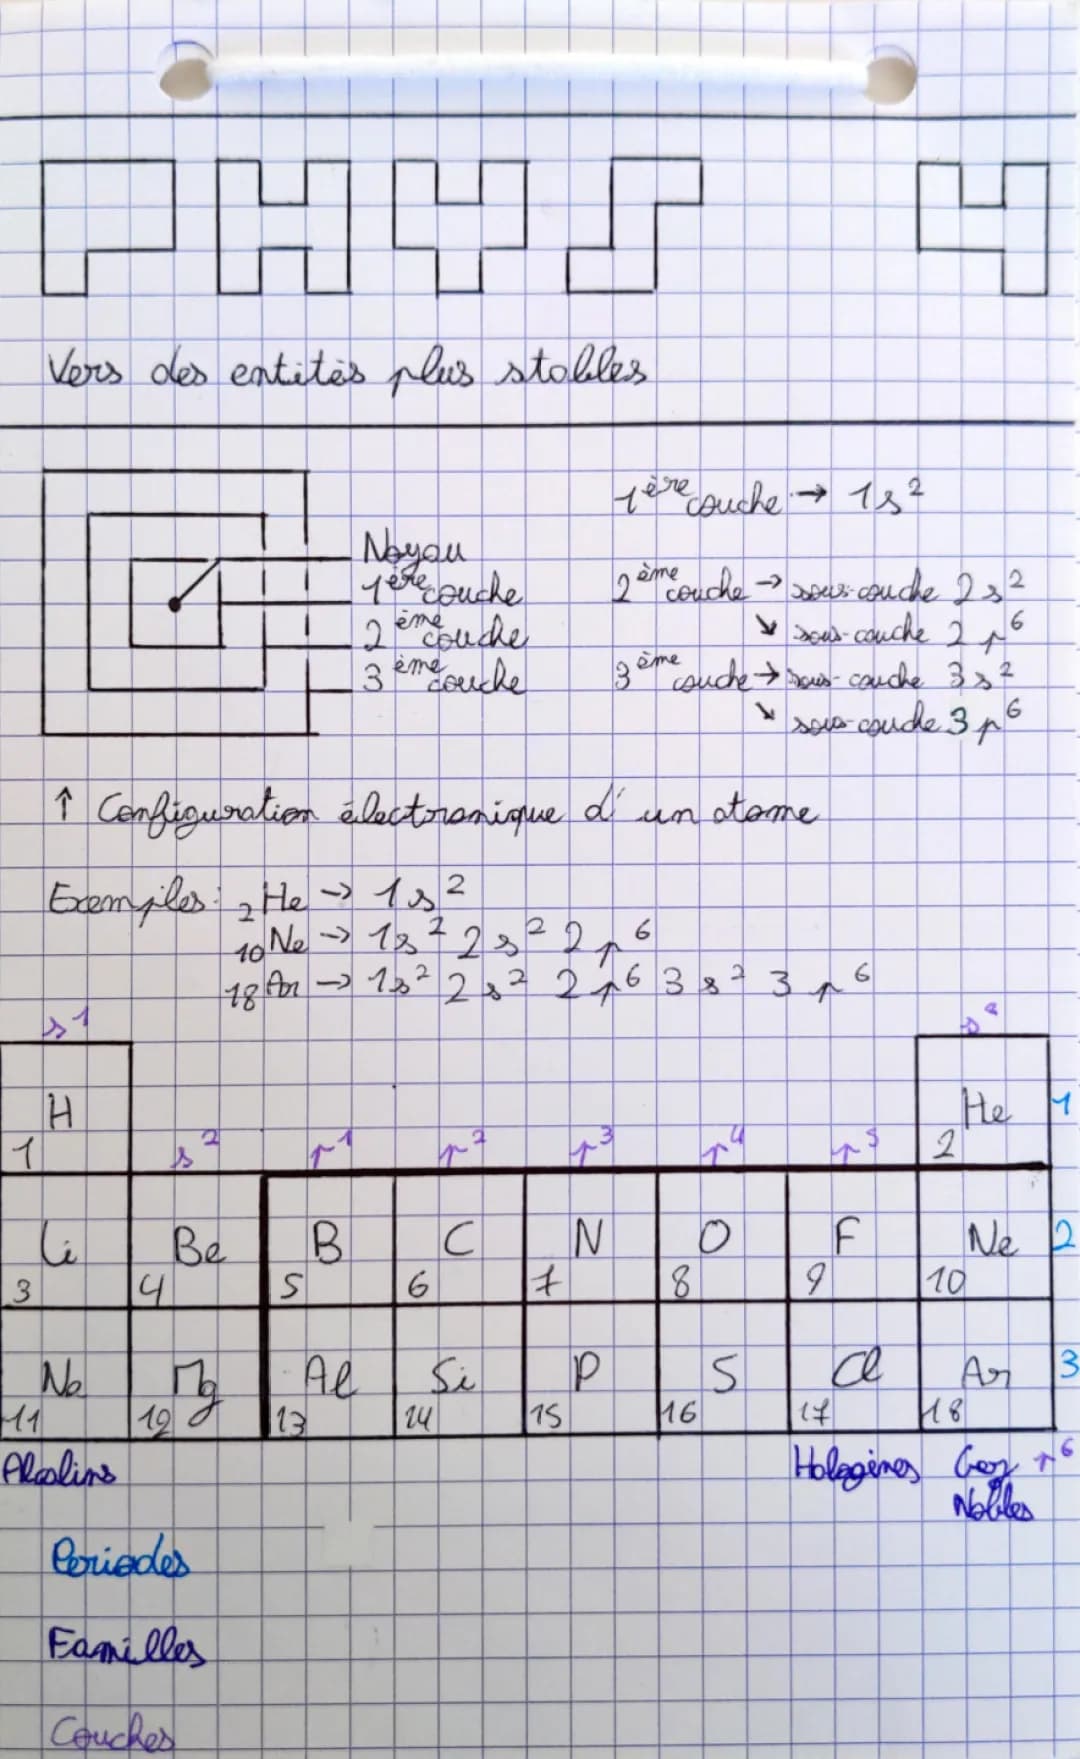 PHYS 4
Vers des entités plus stables
Noyau
1ère couche
2ème couche
3ème couche
1ère couche → 1s²
2ème couche → sous-couche 2s²
↘ sous-couche 2p⁶
3ème couche → sous-couche 3s²
↘ sous-couche 3p⁶
↑ Configuration électronique d'un atome
Exemples: ₂He → 1s²
₁₀Ne → 1s² 2s² 2p⁶
₁₈Ar → 1s² 2s² 2p⁶ 3s² 3p⁶
s¹ s²
H He 1
1 2
s² p¹ p² p³ p⁴ p⁵
Li Be B C N O F Ne 2
3 4 5 6 7 8 9 10
Na Mg Al Si P S Cl Ar 3
11 12 13 14 15 16 17 18
Alcalins Halogènes Gaz p⁶
Nobles
Periodes
Familles
Couches